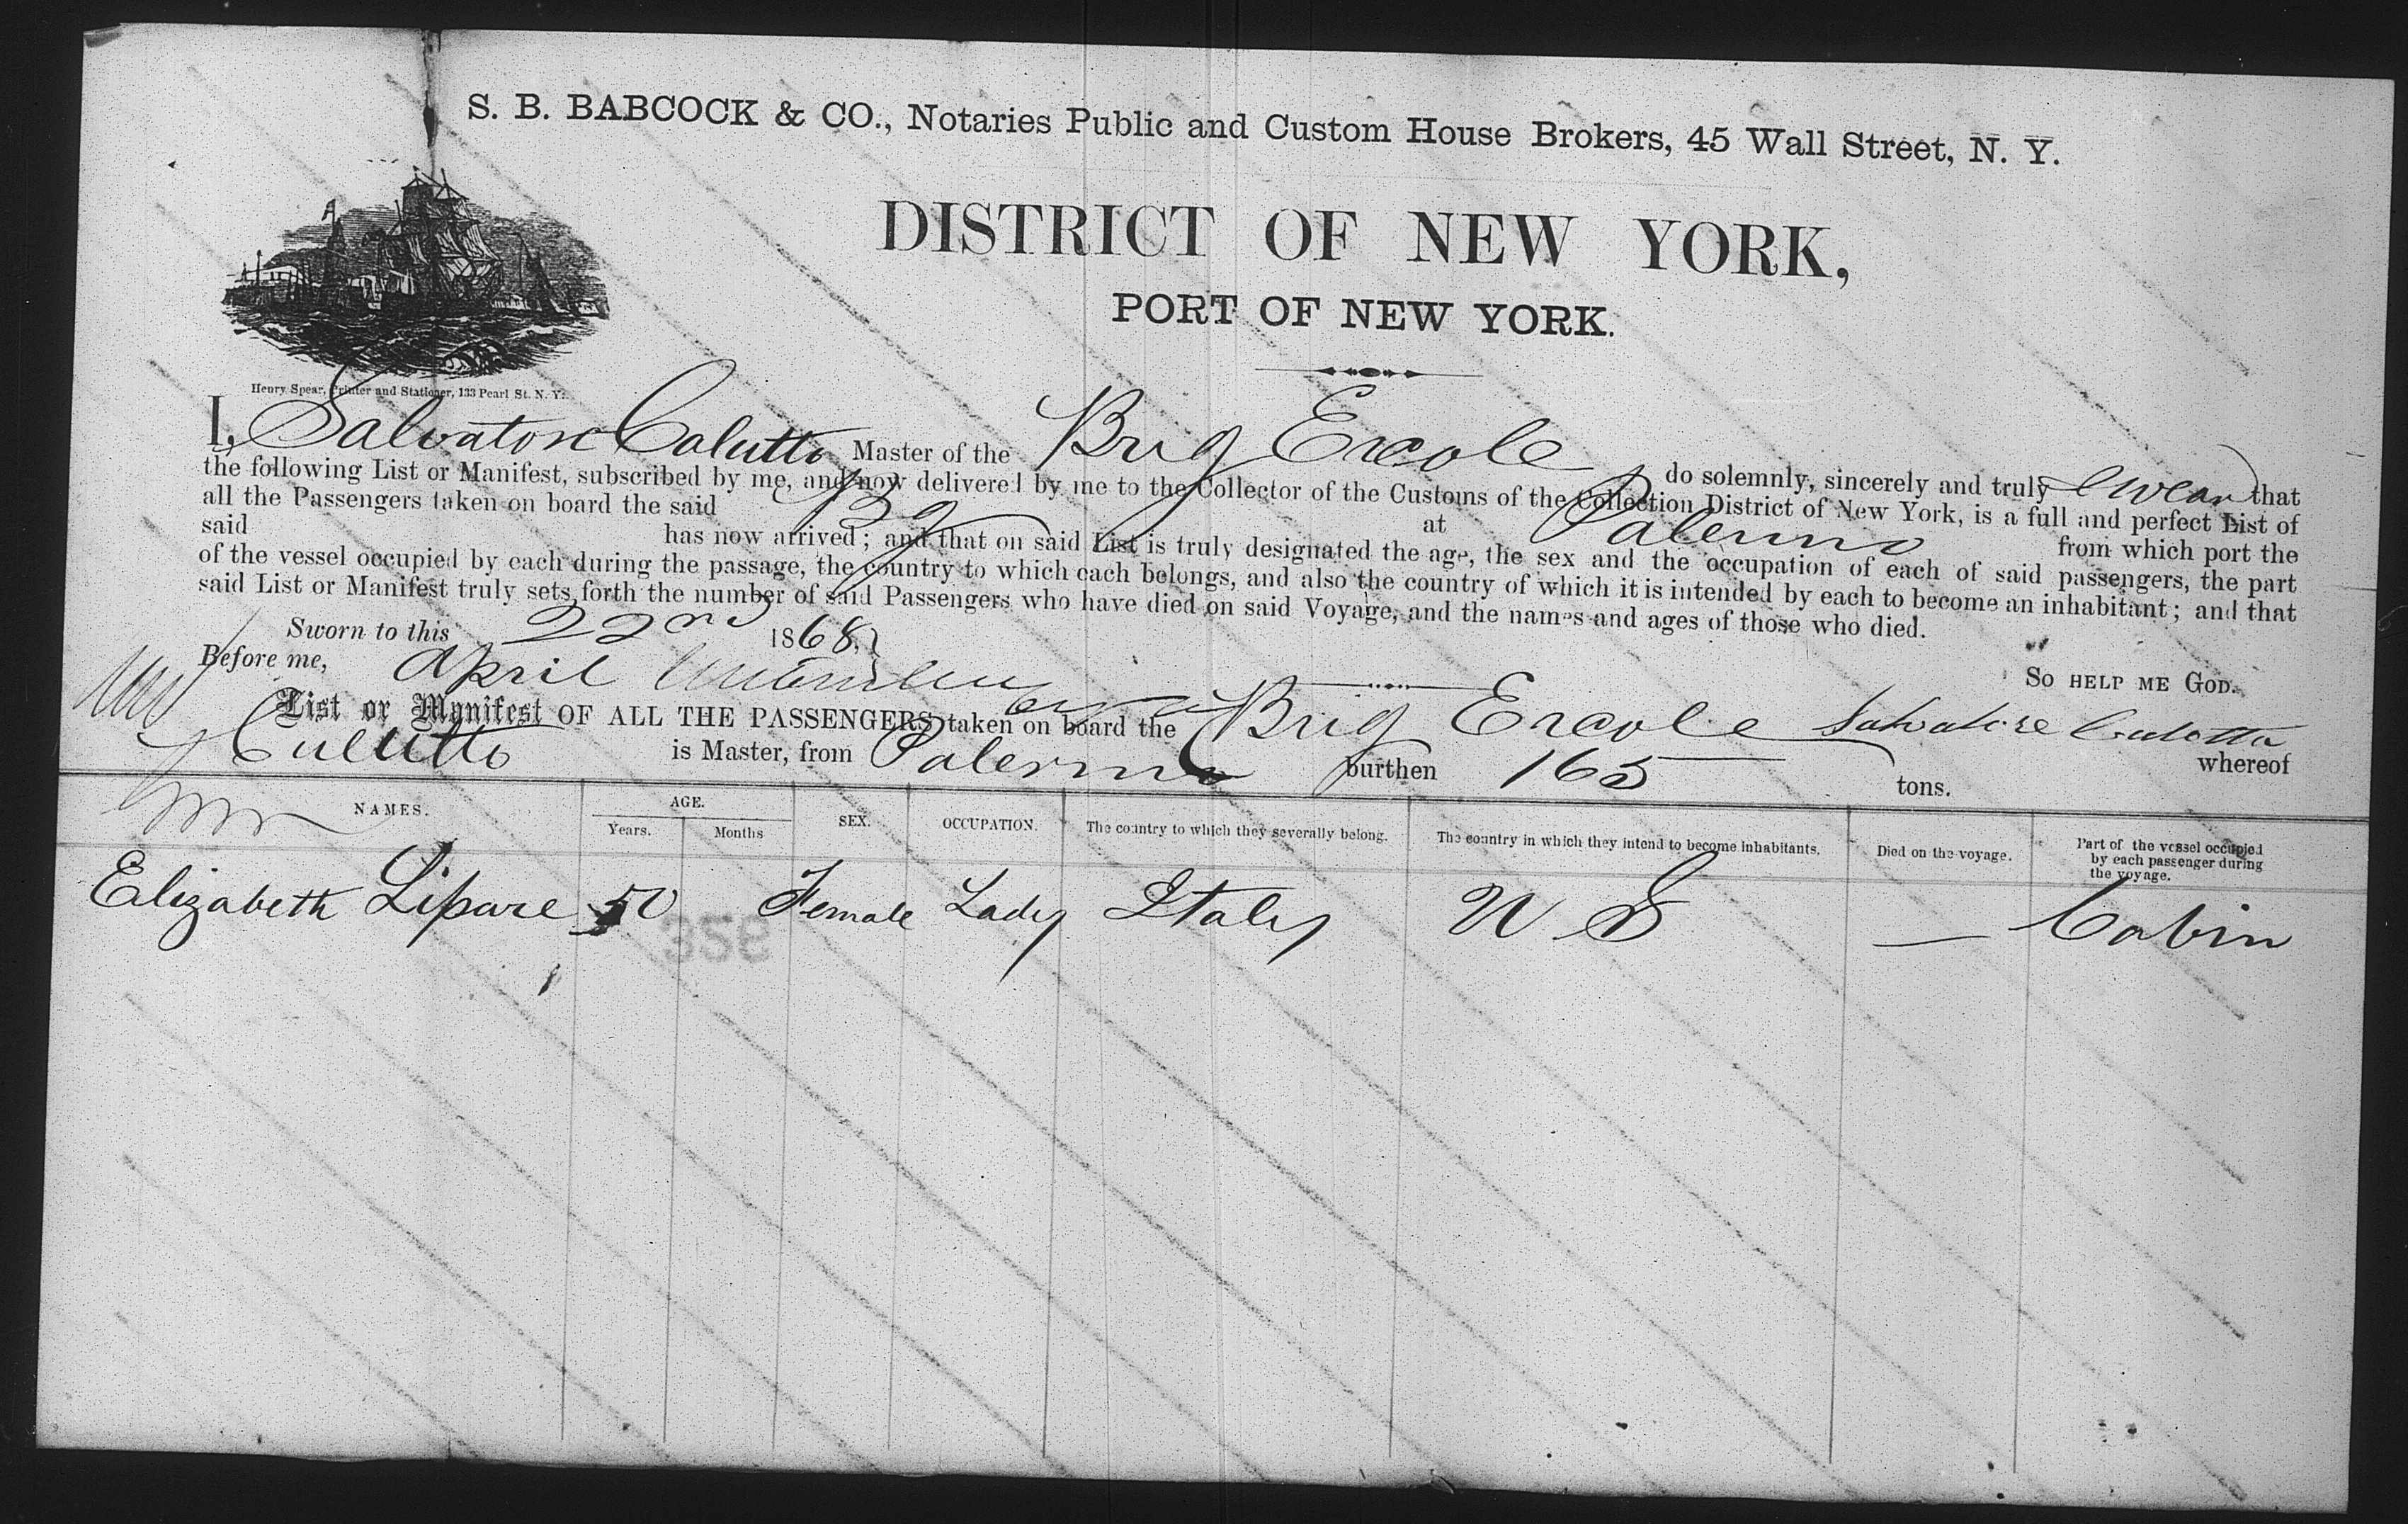 S. B. BABCOCK & CO., Notaries Public and Custom House Brokers, 45 Wall Street, N. Y.
DISTRICT OF NEW YORK,
PORT OF NEW YORK.
Henry Spear, Printer and Stationer, 133 Pearl St. N. Y.
I, Salvatore Calutto Master of the Brig Ercole do solemnly, sincerely and truly swear that
the following List or Manifest, subscribed by me, and now delivered by me to the Collector of the Customs of the Collection District of New York, is a full and perfect List of
all the Passengers taken on board the said Bg at Palermo from which port the
said has now arrived; and that on said List is truly designated the age, the sex and the occupation of each of said passengers, the part
of the vessel occupied by each during the passage, the country to which each belongs, and also the country of which it is intended by each to become an inhabitant; and that
said List or Manifest truly sets forth the number of said Passengers who have died on said Voyage, and the names and ages of those who died.
Sworn to this 22nd 1868,
So HELP ME GOD.
Before me, April
List or Manifest OF ALL THE PASSENGERS taken on board the Brig Ercole Salvatore Culotta
whereof
Culutto is Master, from Palermo burthen 165 tons.
NAMES. AGE. SEX. OCCUPATION. The country to which they severally belong. The country in which they intend to become inhabitants. Died on the voyage. Part of the vessel occupied
by each passenger during
the voyage.
Years. Months
Elizabeth Lipare 50 Female Lady Italy U S — Cabin